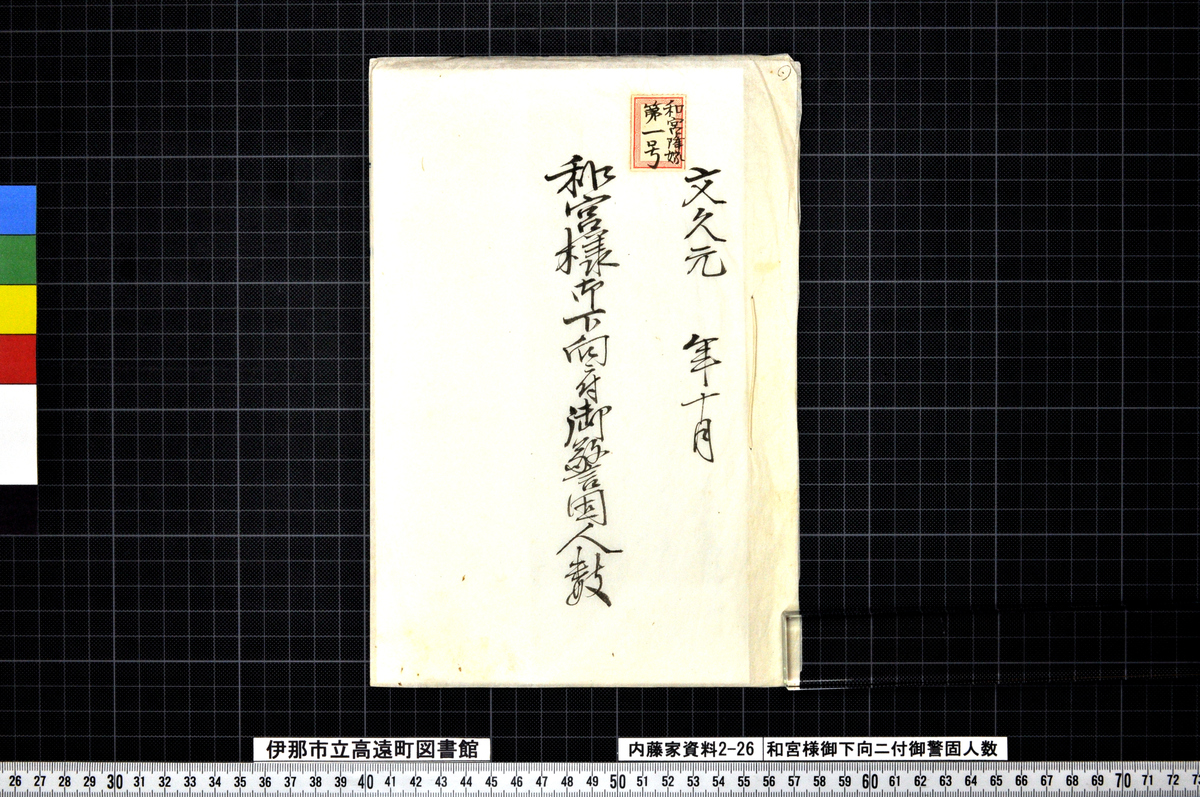 和宮降嫁
第一号
文久元 年十月
和宮様御下向ニ付御警固人数
伊那市立高遠町図書館
内藤家資料2-26
和宮様御下向ニ付御警固人数
26 27 28 29 30 31 32 33 34 35 36 37 38 39 40 41 42 43 44 45 46 47 48 49 50 51 52 53 54 55 56 57 58 59 60 61 62 63 64 65 66 67 68 69 70 71 72 73